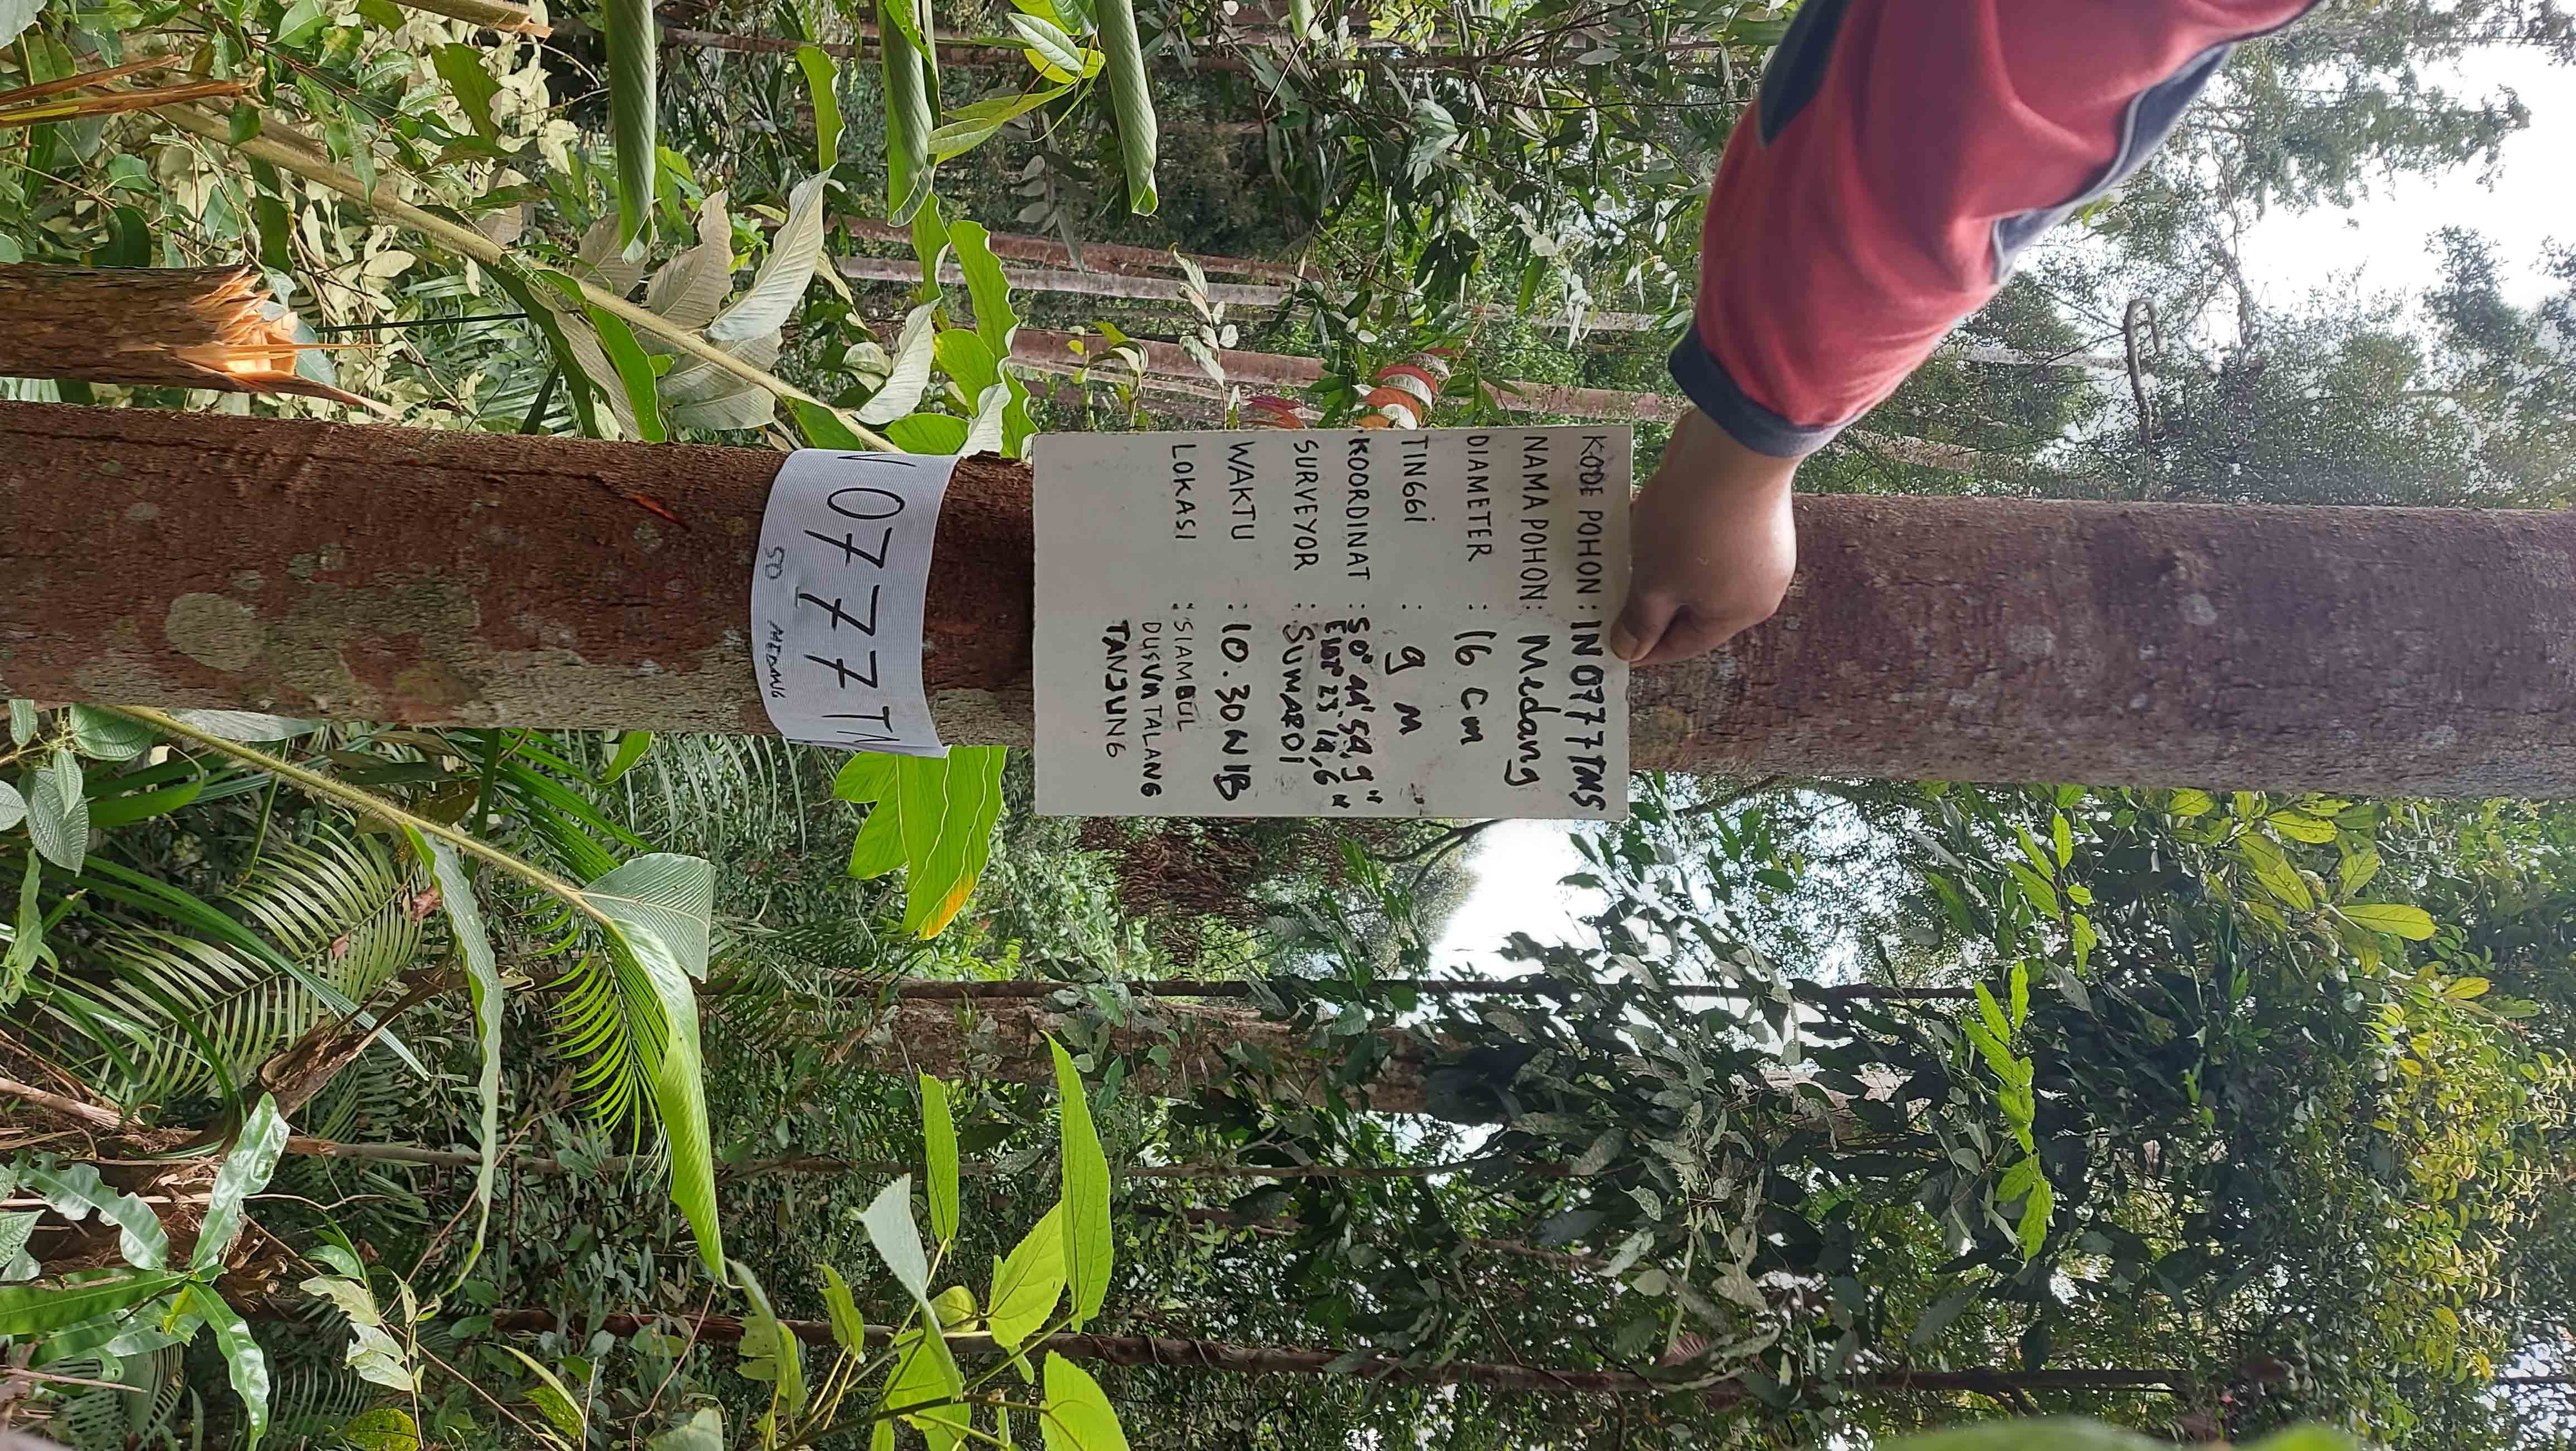 KODE POHON : IN0777TMS
NAMA POHON : Medang
DIAMETER : 16 cm
TINGGI : 9 m
KOORDINAT : S 0°
SURVEYOR : SUMARDI
WAKTU : 10.30 WIB
LOKASI : SIAMBUL
DUSUN TALANG
TANJUNG
N0777T
SO MEDANG